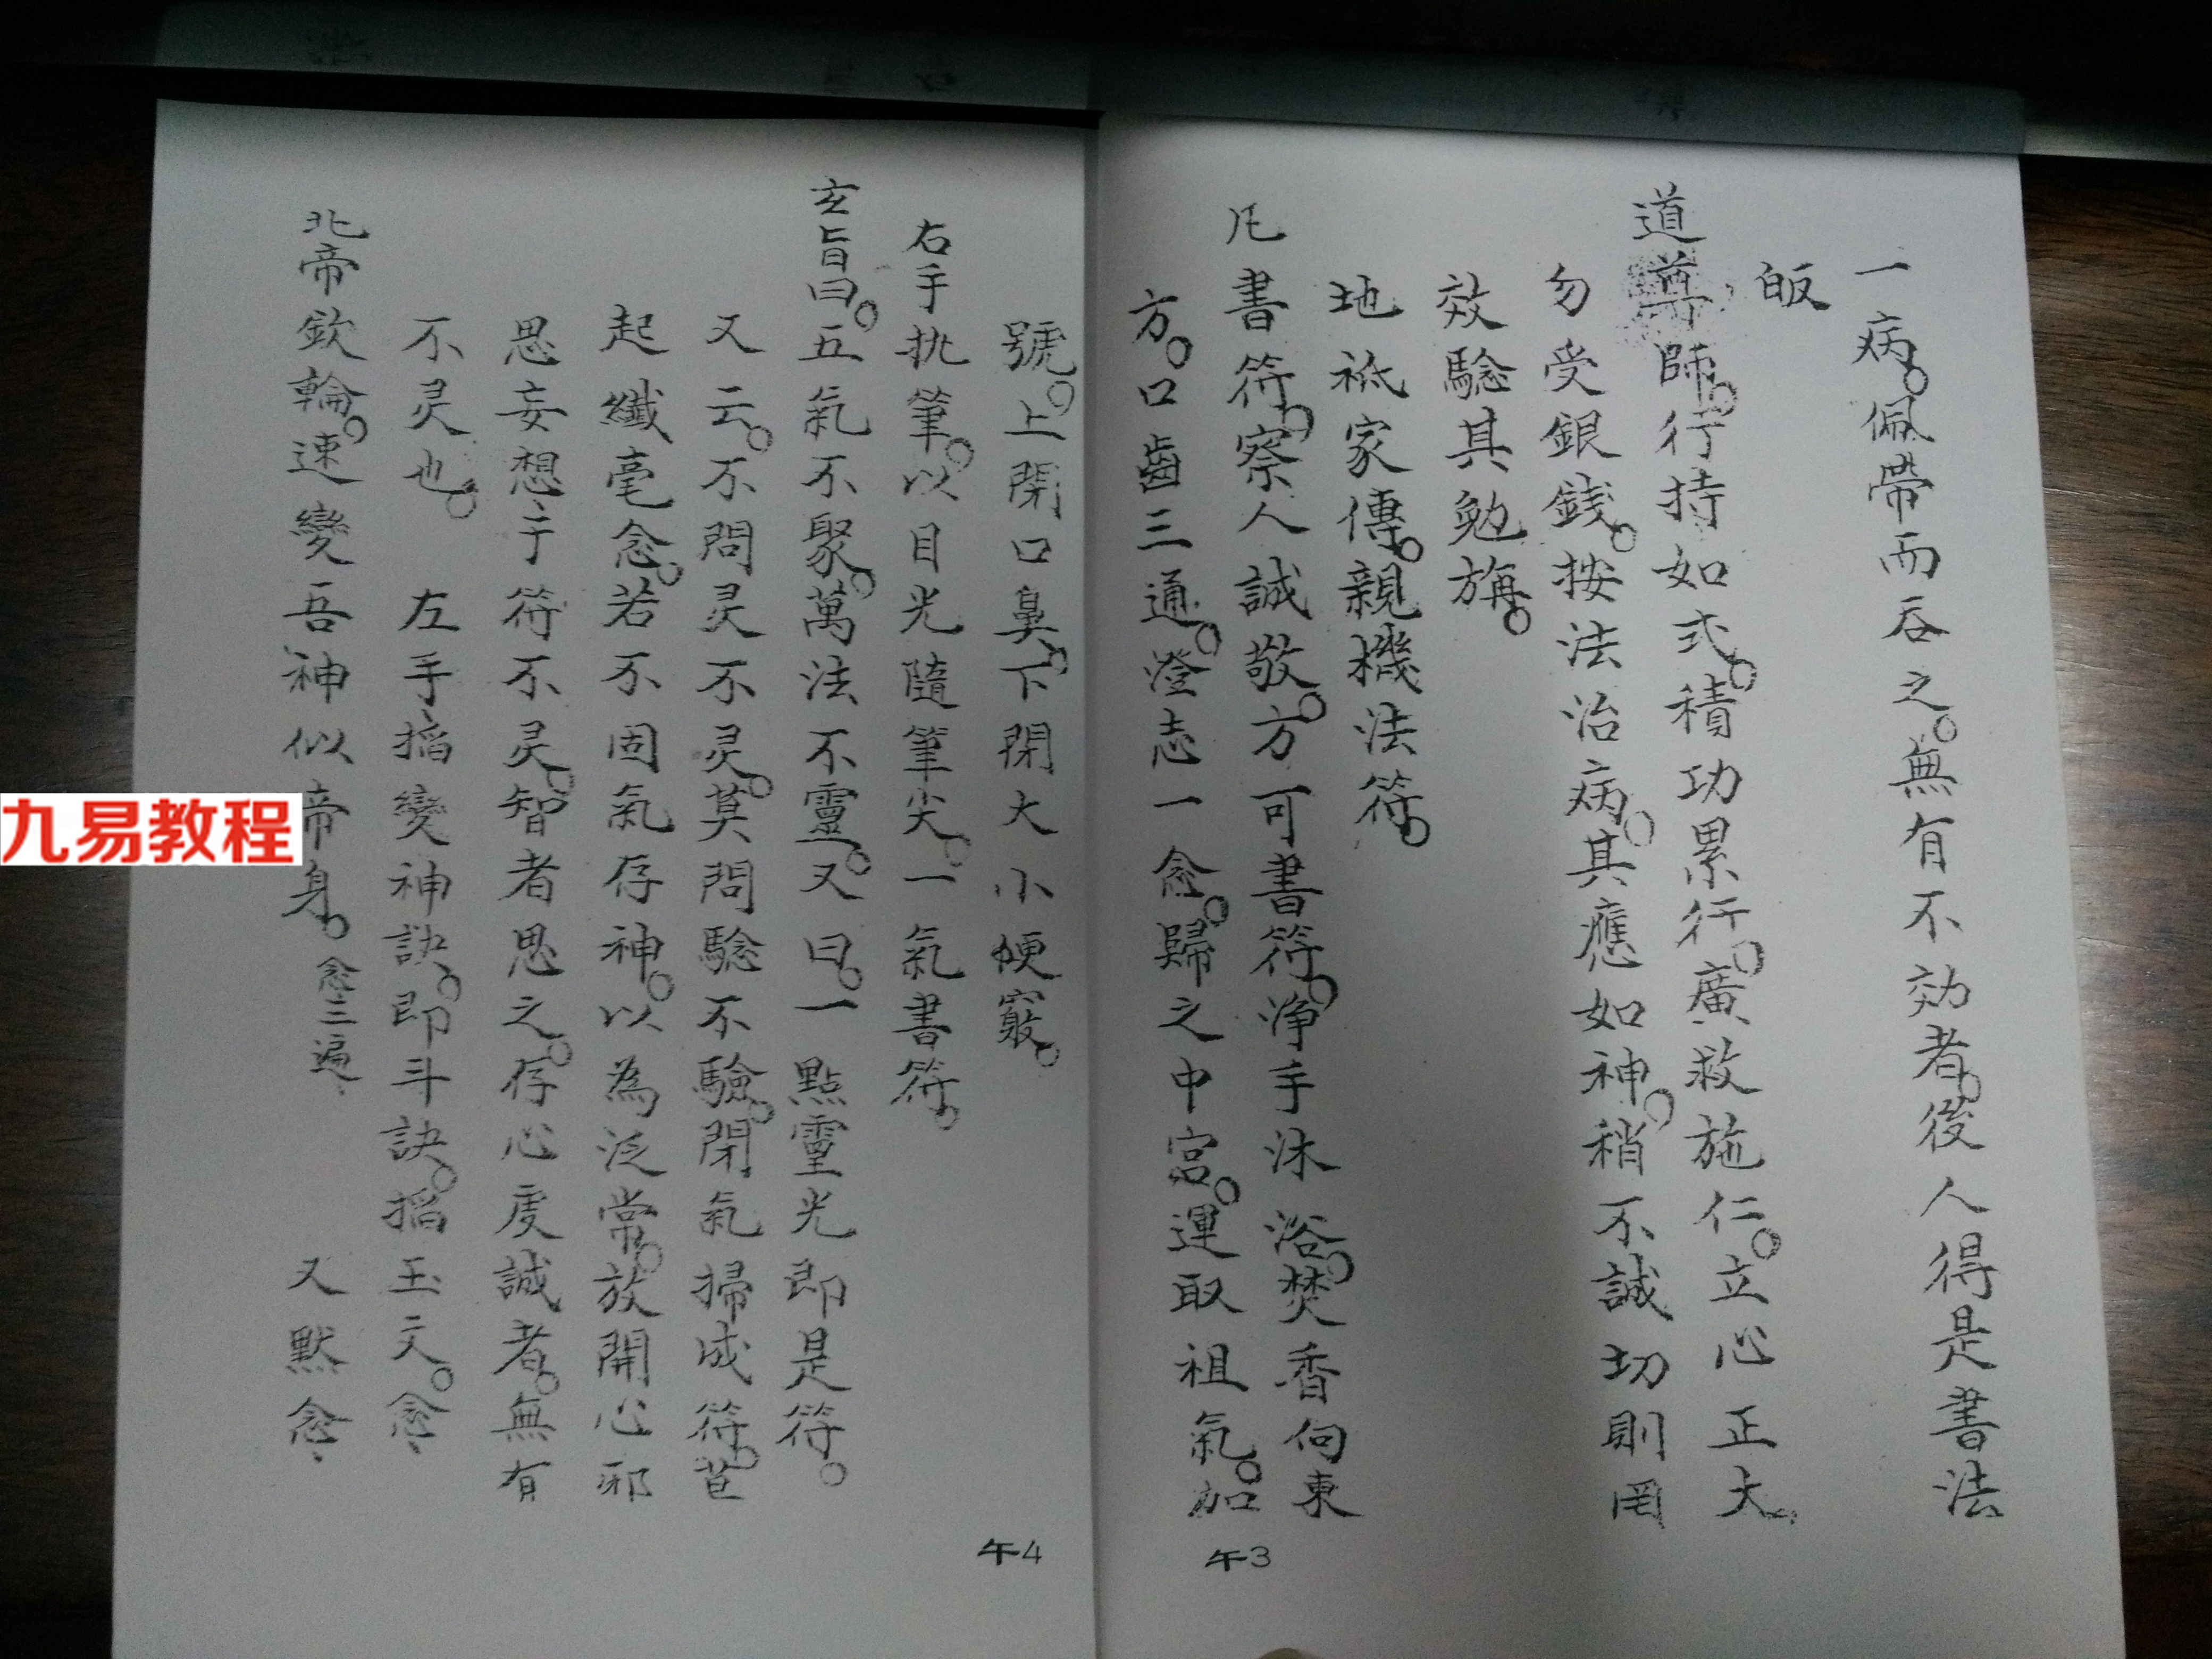 一病。佩帶而吞之。無有不効者。後人得是書法
皈
道尊師。行持如式。積功累行。廣救施仁。立心正大。
勿受銀銭。按法治病。其應如神。稍不誠切則罔
效騐其勉旃。
地祇家傳。親機法符。
凡書符。察人誠敬。方可書符。淨手沐浴。焚香向東
方。口齒三通。澄志一念。歸之中宮。運取祖氣。加
午3
號。上閉口鼻。下閉大小便竅。
右手执筆。以目光隨筆尖。一氣書符。
玄旨曰。五氣不聚。萬法不靈。又曰。一點靈光即是符。
又云。不問灵不灵。莫問騐不驗。閉氣掃成符。苞
起纖毫念。若不固氣存神。以為泛常。放開心邪
思妄想于符不灵。智者思之。存心虔誠者。無有
不灵也。 左手搯變神訣。即斗訣。搯玉文。念、
北帝欽輪。速變吾神似帝身。念三遍、 又默念、
午4
九易教程